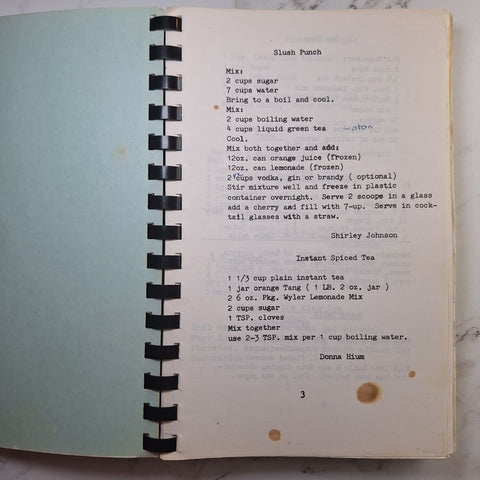 Slush Punch
Mix:
2 cups sugar
7 cups water
Bring to a boil and cool.
Mix:
2 cups boiling water
4 cups liquid green tea Lipton
Cool.
Mix both together and add:
12oz. can orange juice (frozen)
12oz. can lemonade (frozen)
2 cups vodka, gin or brandy ( optional)
Stir mixture well and freeze in plastic
container overnight. Serve 2 scoops in a glass
add a cherry and fill with 7-up. Serve in cock-
tail glasses with a straw.
Shirley Johnson
Instant Spiced Tea
1 1/3 cup plain instant tea
1 jar orange Tang ( 1 LB. 2 oz. jar )
2 6 oz. Pkg. Wyler Lemonade Mix
2 cups sugar
1 TSP. cloves
Mix together
use 2-3 TSP. mix per 1 cup boiling water.
Donna Hium
3